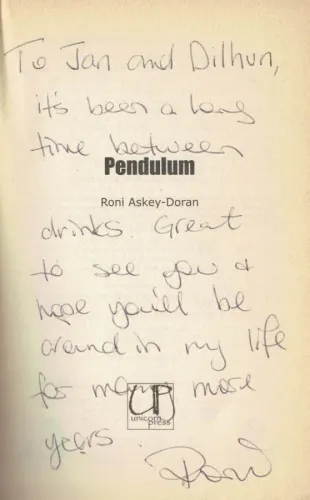 To Jan and Dilhun,
it's been a long
time between
Pendulum
Roni Askey-Doran
drinks. Great
to see you &
hope you'll be
around in my life
for many more
unicorn
press
years.
Roni